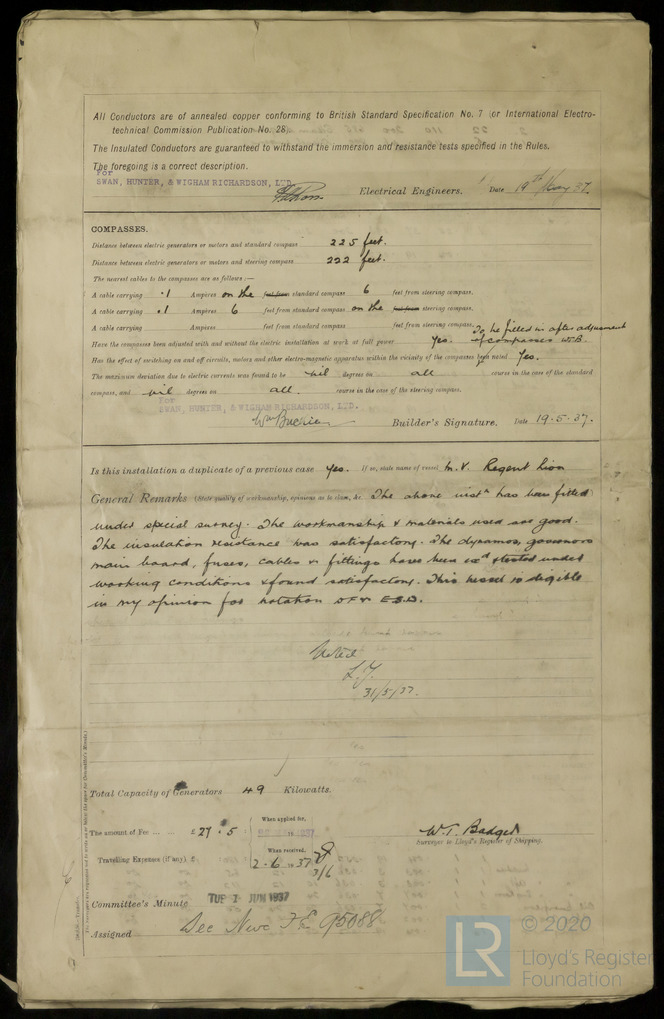 All Conductors are of annealed copper conforming to British Standard Specification No. 7 (or International Electro-
technical Commission Publication No. 28).
The Insulated Conductors are guaranteed to withstand the immersion and resistance tests specified in the Rules.
The foregoing is a correct description.
For
SWAN, HUNTER, & WIGHAM RICHARDSON, LTD.
Electrical Engineers. Date 19th May 37.
COMPASSES.
Distance between electric generators or motors and standard compass 225 feet.
Distance between electric generators or motors and steering compass 222 feet.
The nearest cables to the compasses are as follows:—
A cable carrying .1 Amperes on the feet from standard compass 6 feet from steering compass.
A cable carrying .1 Amperes 6 feet from standard compass on the feet from steering compass.
A cable carrying Amperes feet from standard compass feet from steering compass.
To be filled in after adjusment
Have the compasses been adjusted with and without the electric installation at work at full power yes. of compasses WB.
Has the effect of switching on and off circuits, motors and other electro-magnetic apparatus within the vicinity of the compasses been noted yes.
The maximum deviation due to electric currents was found to be nil degrees on all course in the case of the standard
compass, and nil degrees on all course in the case of the steering compass.
For
SWAN, HUNTER, & WIGHAM RICHARDSON, LTD.
Wm Buckie Builder's Signature. Date 19.5.37.
Is this installation a duplicate of a previous case yes. If so, state name of vessel M.V. Regent Lion
General Remarks (State quality of workmanship, opinions as to class, &c. The above instn has been fitted
under special survey. The workmanship & materials used are good.
The insulation resistance was satisfactory. The dynamos, governors
main board, fuses, cables & fittings have been exd & tested under
working conditions & found satisfactory. This vessel is eligible
in my opinion for notation
Noted
L.Y.
31/5/37.
Total Capacity of Generators 49 Kilowatts.
The amount of Fee ... ... £ 27 . 5 : When applied for,
Travelling Expenses (if any) £ When received,
2.6 1937
3/6
W.T. Badger
Surveyor to Lloyd's Register of Shipping.
Committee's Minute TUE 1 JUN 1937
Assigned See Nwc F.E. 95088
© 2020
LR
Lloyd's Register
Foundation